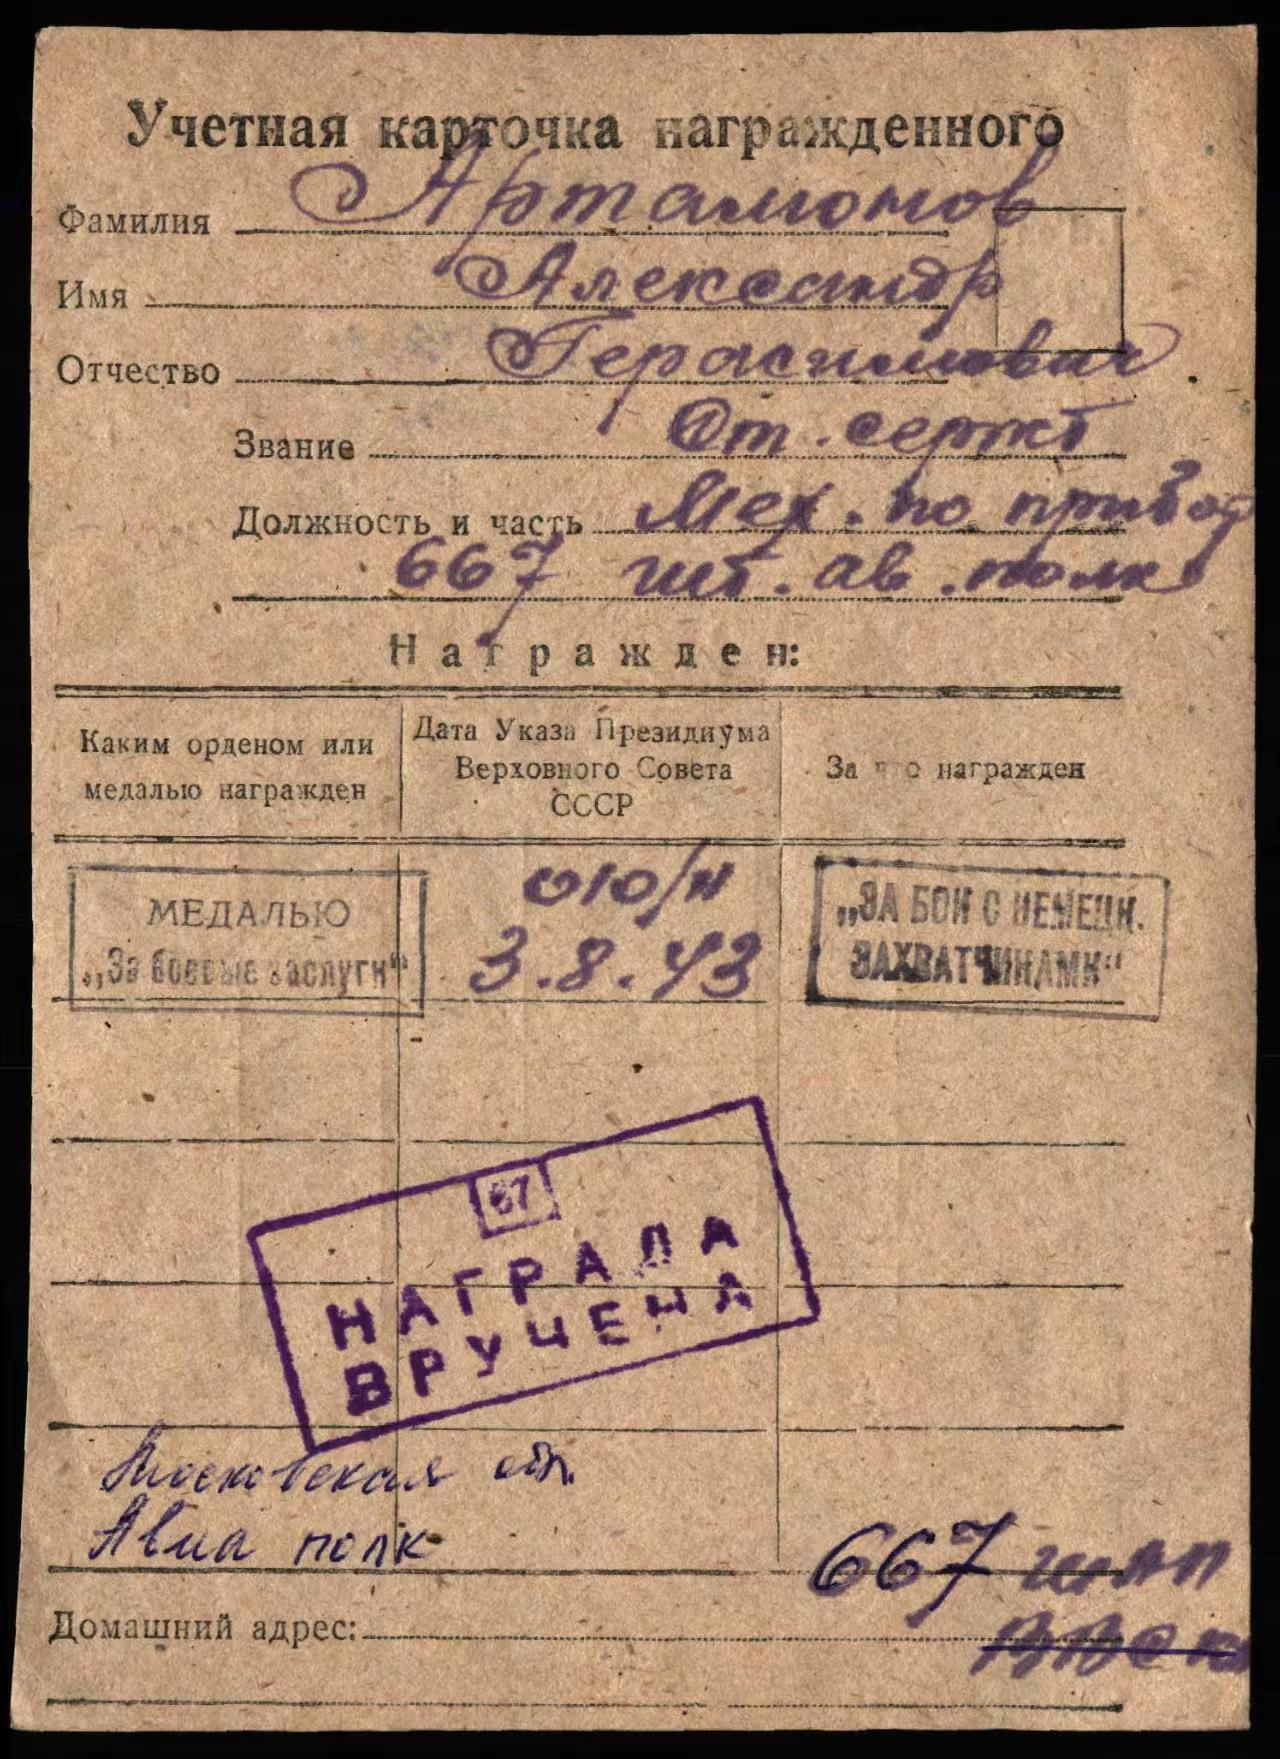 Учетная карточка награжденного
Фамилия Артамонов
Имя Александр
Отчество Герасимович
Звание Ст. сержт
Должность и часть Мех. по приб
667 шт. ав. полк
Награжден:
Каким орденом или
медалью награжден
Дата Указа Президиума
Верховного Совета
СССР
За что награжден
МЕДАЛЬЮ
„За боевые заслуги“
010/н
3.8.43
„ЗА БОИ С НЕМЕЦК.
ЗАХВАТЧИКАМИ“
67
НАГРАДА
ВРУЧЕНА
Московская обл.
Авиа полк
667 ШАП
Домашний адрес: